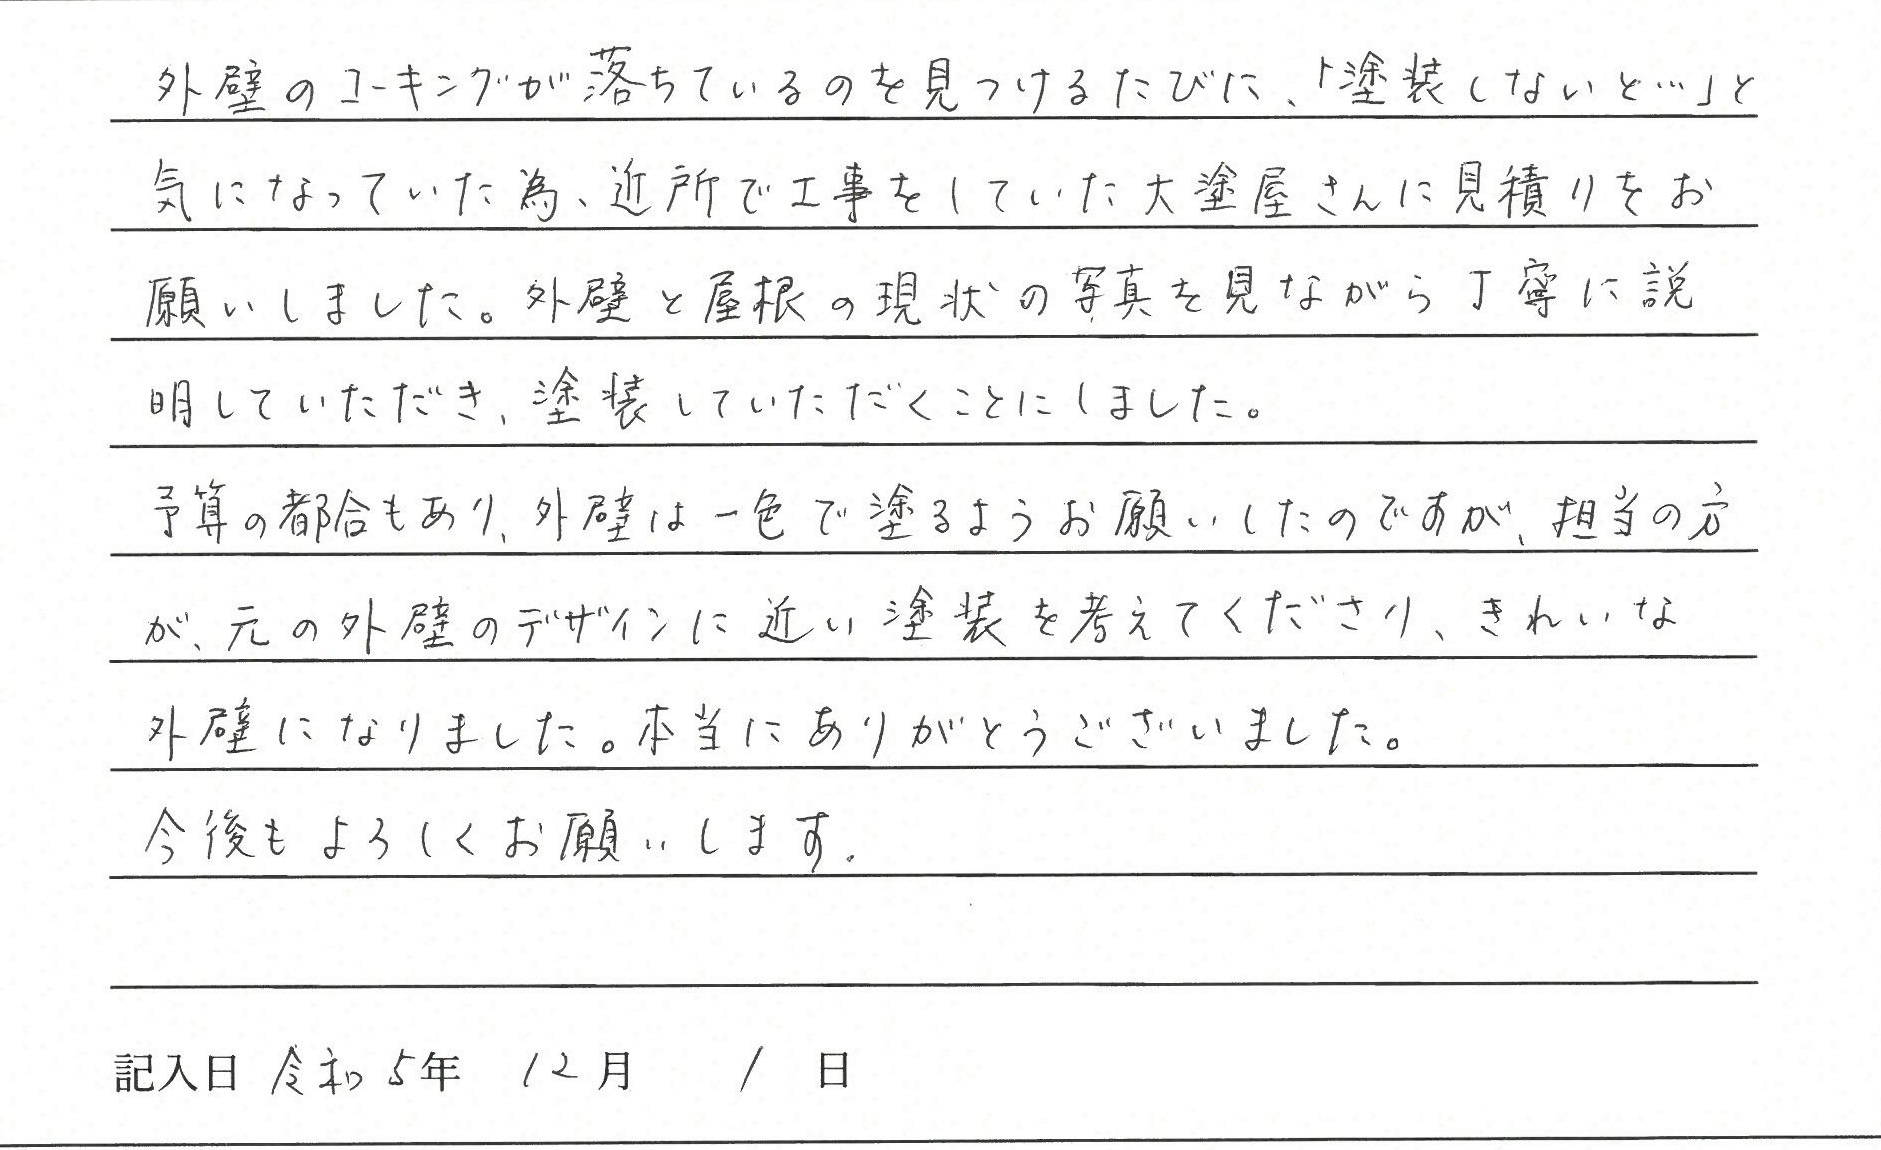 外壁のコーキングが落ちているのを見つけるたびに、「塗装しないと…」と
気になっていた為、近所で工事をしていた大塗屋さんに見積りをお
願いしました。外壁と屋根の現状の写真を見ながら丁寧に説
明していただき、塗装していただくことにしました。
予算の都合もあり、外壁は一色で塗るようお願いしたのですが、担当の方
が、元の外壁のデザインに近い塗装を考えてくださり、きれいな
外壁になりました。本当にありがとうございました。
今後もよろしくお願いします。
記入日 令和5年 12月 1日